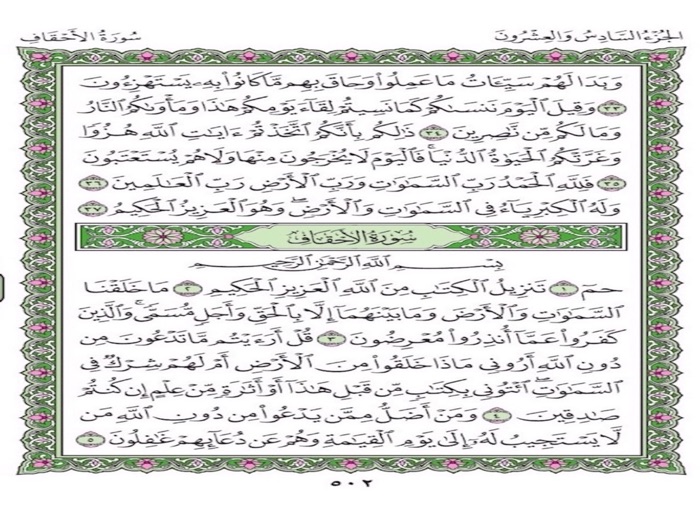 الجزء السادس والعشرون
سورة الأحقاف
وَبَدَا لَهُمْ سَيِّـَٔاتُ مَا عَمِلُوا۟ وَحَاقَ بِهِم مَّا كَانُوا۟ بِهِۦ يَسْتَهْزِءُونَ
٣٣ وَقِيلَ ٱلْيَوْمَ نَنسَىٰكُمْ كَمَا نَسِيتُمْ لِقَآءَ يَوْمِكُمْ هَٰذَا وَمَأْوَىٰكُمُ ٱلنَّارُ
وَمَا لَكُم مِّن نَّـٰصِرِينَ ٣٤ ذَٰلِكُم بِأَنَّكُمُ ٱتَّخَذْتُمْ ءَايَـٰتِ ٱللَّهِ هُزُوًا
وَغَرَّتْكُمُ ٱلْحَيَوٰةُ ٱلدُّنْيَا ۚ فَٱلْيَوْمَ لَا يُخْرَجُونَ مِنْهَا وَلَا هُمْ يُسْتَعْتَبُونَ
٣٥ فَلِلَّهِ ٱلْحَمْدُ رَبِّ ٱلسَّمَـٰوَٰتِ وَرَبِّ ٱلْأَرْضِ رَبِّ ٱلْعَـٰلَمِينَ ٣٦
وَلَهُ ٱلْكِبْرِيَآءُ فِى ٱلسَّمَـٰوَٰتِ وَٱلْأَرْضِ ۖ وَهُوَ ٱلْعَزِيزُ ٱلْحَكِيمُ ٣٧
سُورَةُ الأَحْقَافِ
بِسْمِ ٱللَّهِ ٱلرَّحْمَـٰنِ ٱلرَّحِيمِ
حمٓ ١ تَنزِيلُ ٱلْكِتَـٰبِ مِنَ ٱللَّهِ ٱلْعَزِيزِ ٱلْحَكِيمِ ٢ مَا خَلَقْنَا
ٱلسَّمَـٰوَٰتِ وَٱلْأَرْضَ وَمَا بَيْنَهُمَآ إِلَّا بِٱلْحَقِّ وَأَجَلٍ مُّسَمًّى ۚ وَٱلَّذِينَ
كَفَرُوا۟ عَمَّآ أُنذِرُوا۟ مُعْرِضُونَ ٣ قُلْ أَرَءَيْتُم مَّا تَدْعُونَ مِن
دُونِ ٱللَّهِ أَرُونِى مَاذَا خَلَقُوا۟ مِنَ ٱلْأَرْضِ أَمْ لَهُمْ شِرْكٌ فِى
ٱلسَّمَـٰوَٰتِ ۖ ٱئْتُونِى بِكِتَـٰبٍ مِّن قَبْلِ هَـٰذَآ أَوْ أَثَـٰرَةٍ مِّنْ عِلْمٍ إِن كُنتُمْ
صَـٰدِقِينَ ٤ وَمَنْ أَضَلُّ مِمَّن يَدْعُوا۟ مِن دُونِ ٱللَّهِ مَن
لَّا يَسْتَجِيبُ لَهُۥٓ إِلَىٰ يَوْمِ ٱلْقِيَـٰمَةِ وَهُمْ عَن دُعَآئِهِمْ غَـٰفِلُونَ ٥
٥٠٢